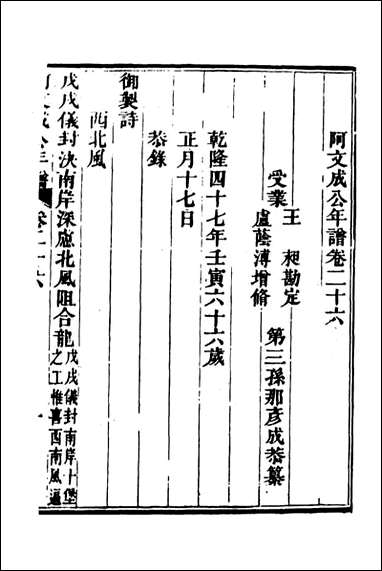 阿文成公年譜卷二十六
第三孫那彥成恭纂
受業
王　昶勘定
盧蔭溥增修
乾隆四十七年壬寅六十六歲
正月十七日
恭錄
御製詩
西北風
戊戌儀封決南岸深慮北風阻合龍戊戌儀封南岸十堡之工惟喜西南風逼
阿文成公年譜　卷二十六　一